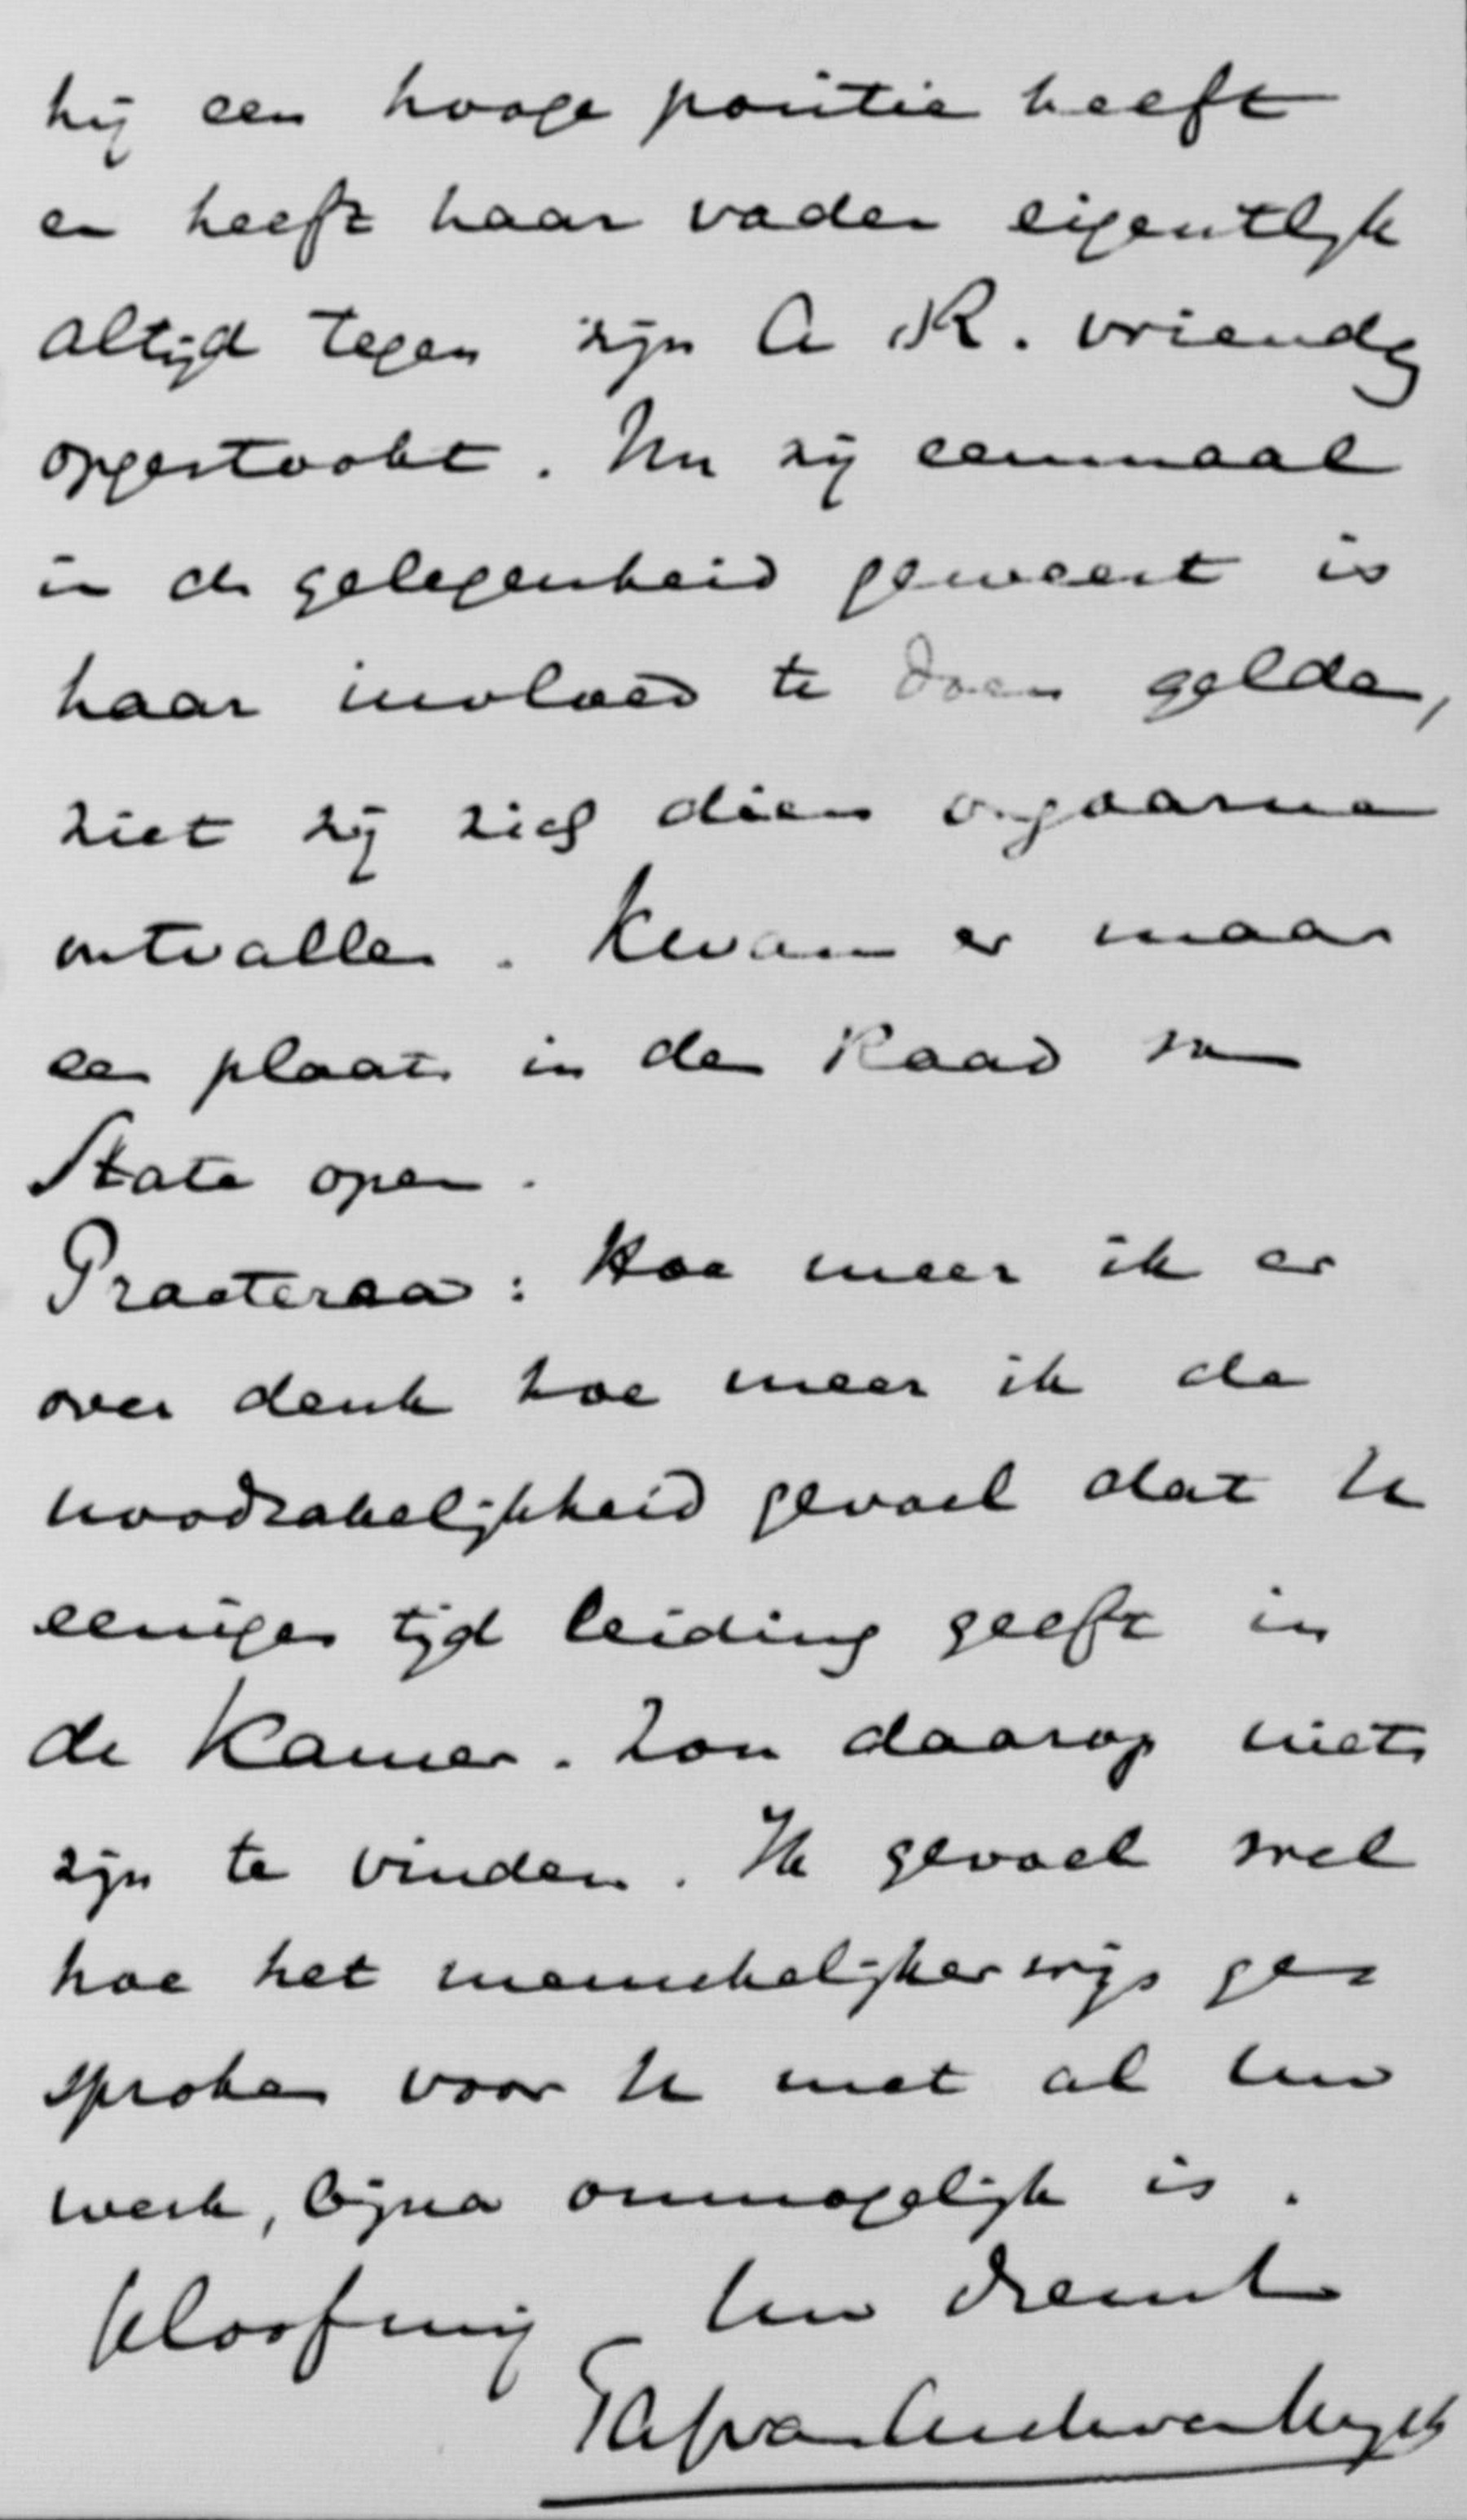 hij een hooge positie heeft
en heeft haar vader eigentlijk
altijd tegen zijn A.R. vrienden
opgestookt. Nu zij eenmaal
in de gelegenheid geweest is
haar invloed te doen gelden,
ziet zij zich dien ongaarne
ontvallen. Kwam er maar
een plaats in den Raad van
State open.
Praeterea: Hoe meer ik er
over denk hoe meer ik de
noodzakelijkheid gevoel dat U
eenigen tijd leiding geeft in
de Kamer. Zou daarop niets
zijn te vinden. Ik gevoel wel
hoe het menschelijkerwijs ge=
sproken voor U met al Uw
werk, bijna onmogelijk is.
Geloof mij Uw vriend